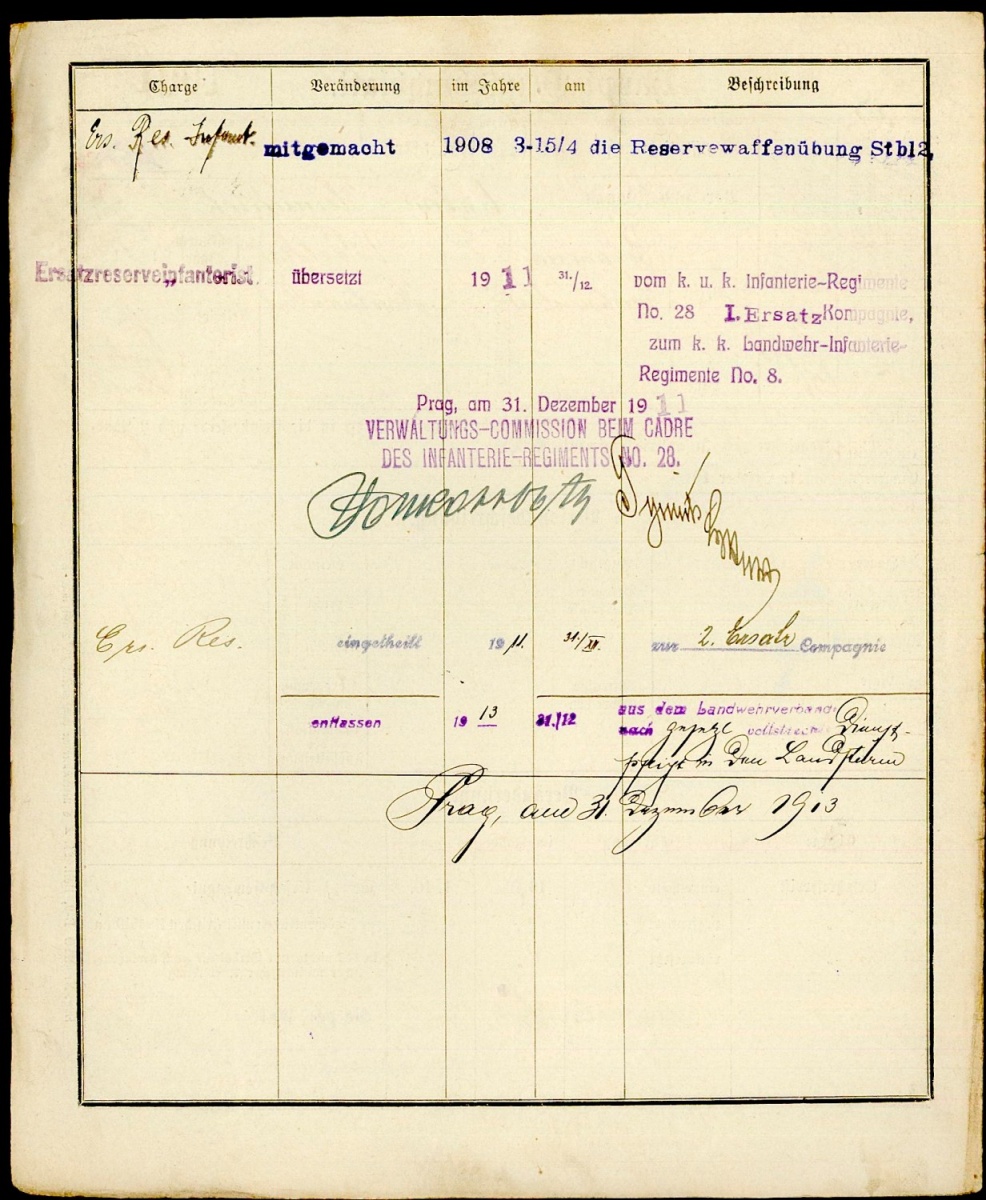 Charge Veränderung im Jahre am Beschreibung
Ers. Res. Infant. mitgemacht 1908 3-15/4 die Reservewaffenübung Stbl2,
Ersatzreserveinfanterist. übersetzt 1911 31./12. vom k. u. k. Infanterie-Regimente
No. 28 I. Ersatz Kompagnie,
zum k. k. Landwehr-Infanterie-
Regimente No. 8.
Prag, am 31. Dezember 1911
VERWALTUNGS-COMMISSION BEIM CADRE
DES INFANTERIE-REGIMENTS NO. 28.
Ers. Res. eingetheilt 1911. 31./XII. zur 2. Ersatz Compagnie
entlassen 1913 31./12 aus dem Landwehrverbande
nach gesetzl vollstreckter Dienst-
pflicht in den Landsturm
Prag, am 31. Dezember 1913